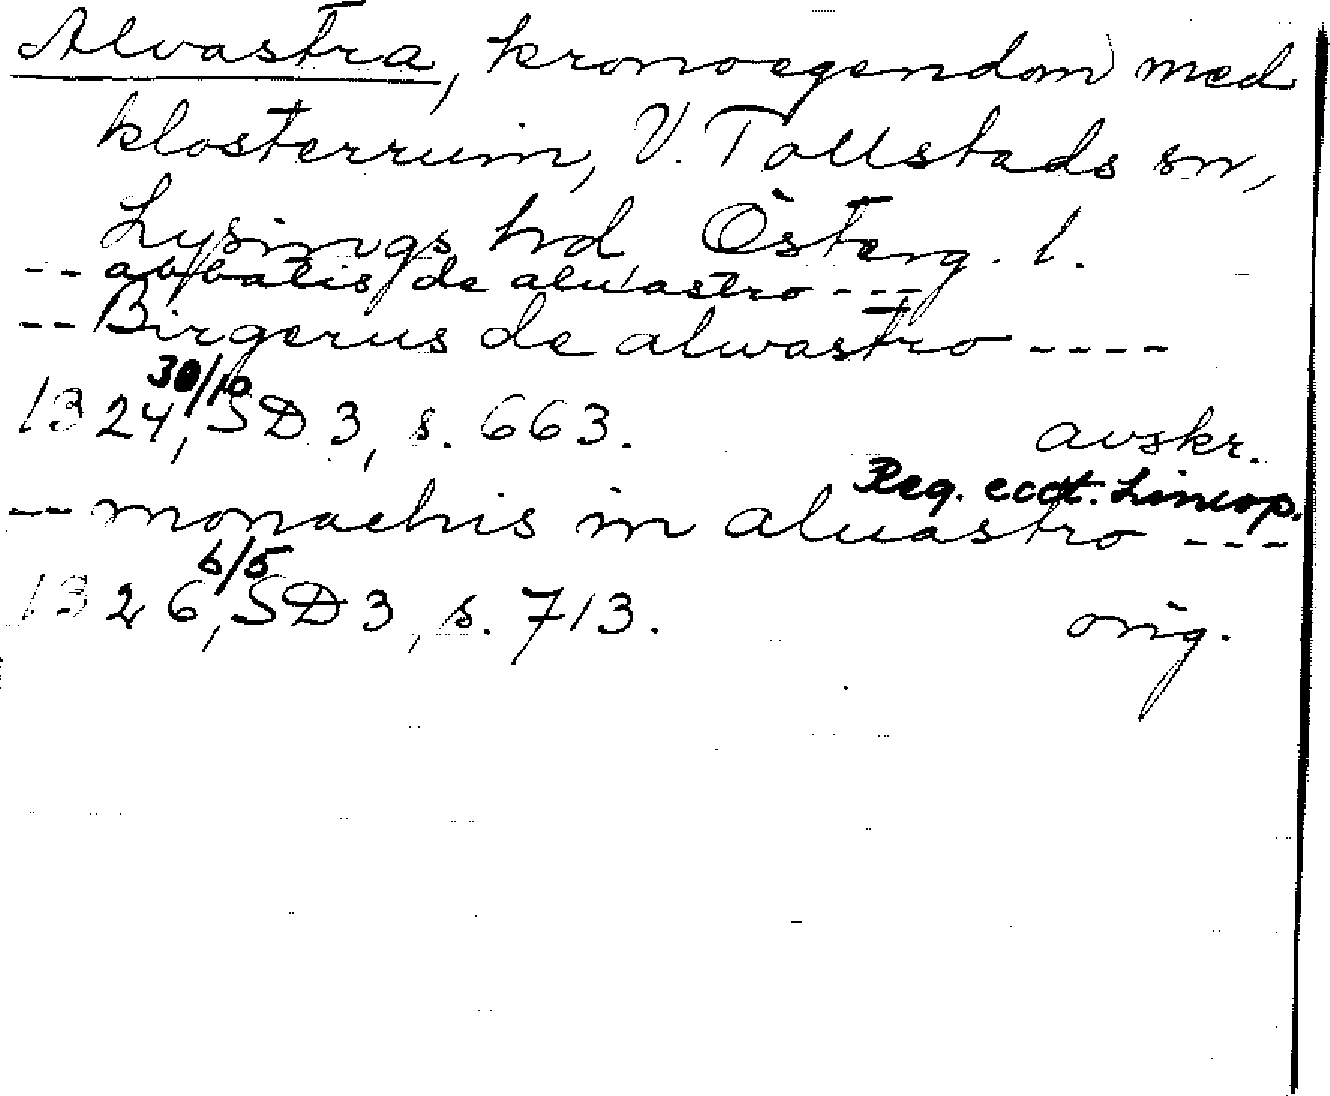 Alvastra, kronoegendom med
klosterruin, V. Tollstads sn,
Lysings hd Österg. l.
-- abbatis de aluastro ---
-- Birgerus de alwastro ----
1324 30/10, SD 3, s. 663. avskr.
Reg. eccl. Lincop.
-- monachis in aluastro ---
1326 6/5, SD 3, s. 713. orig.